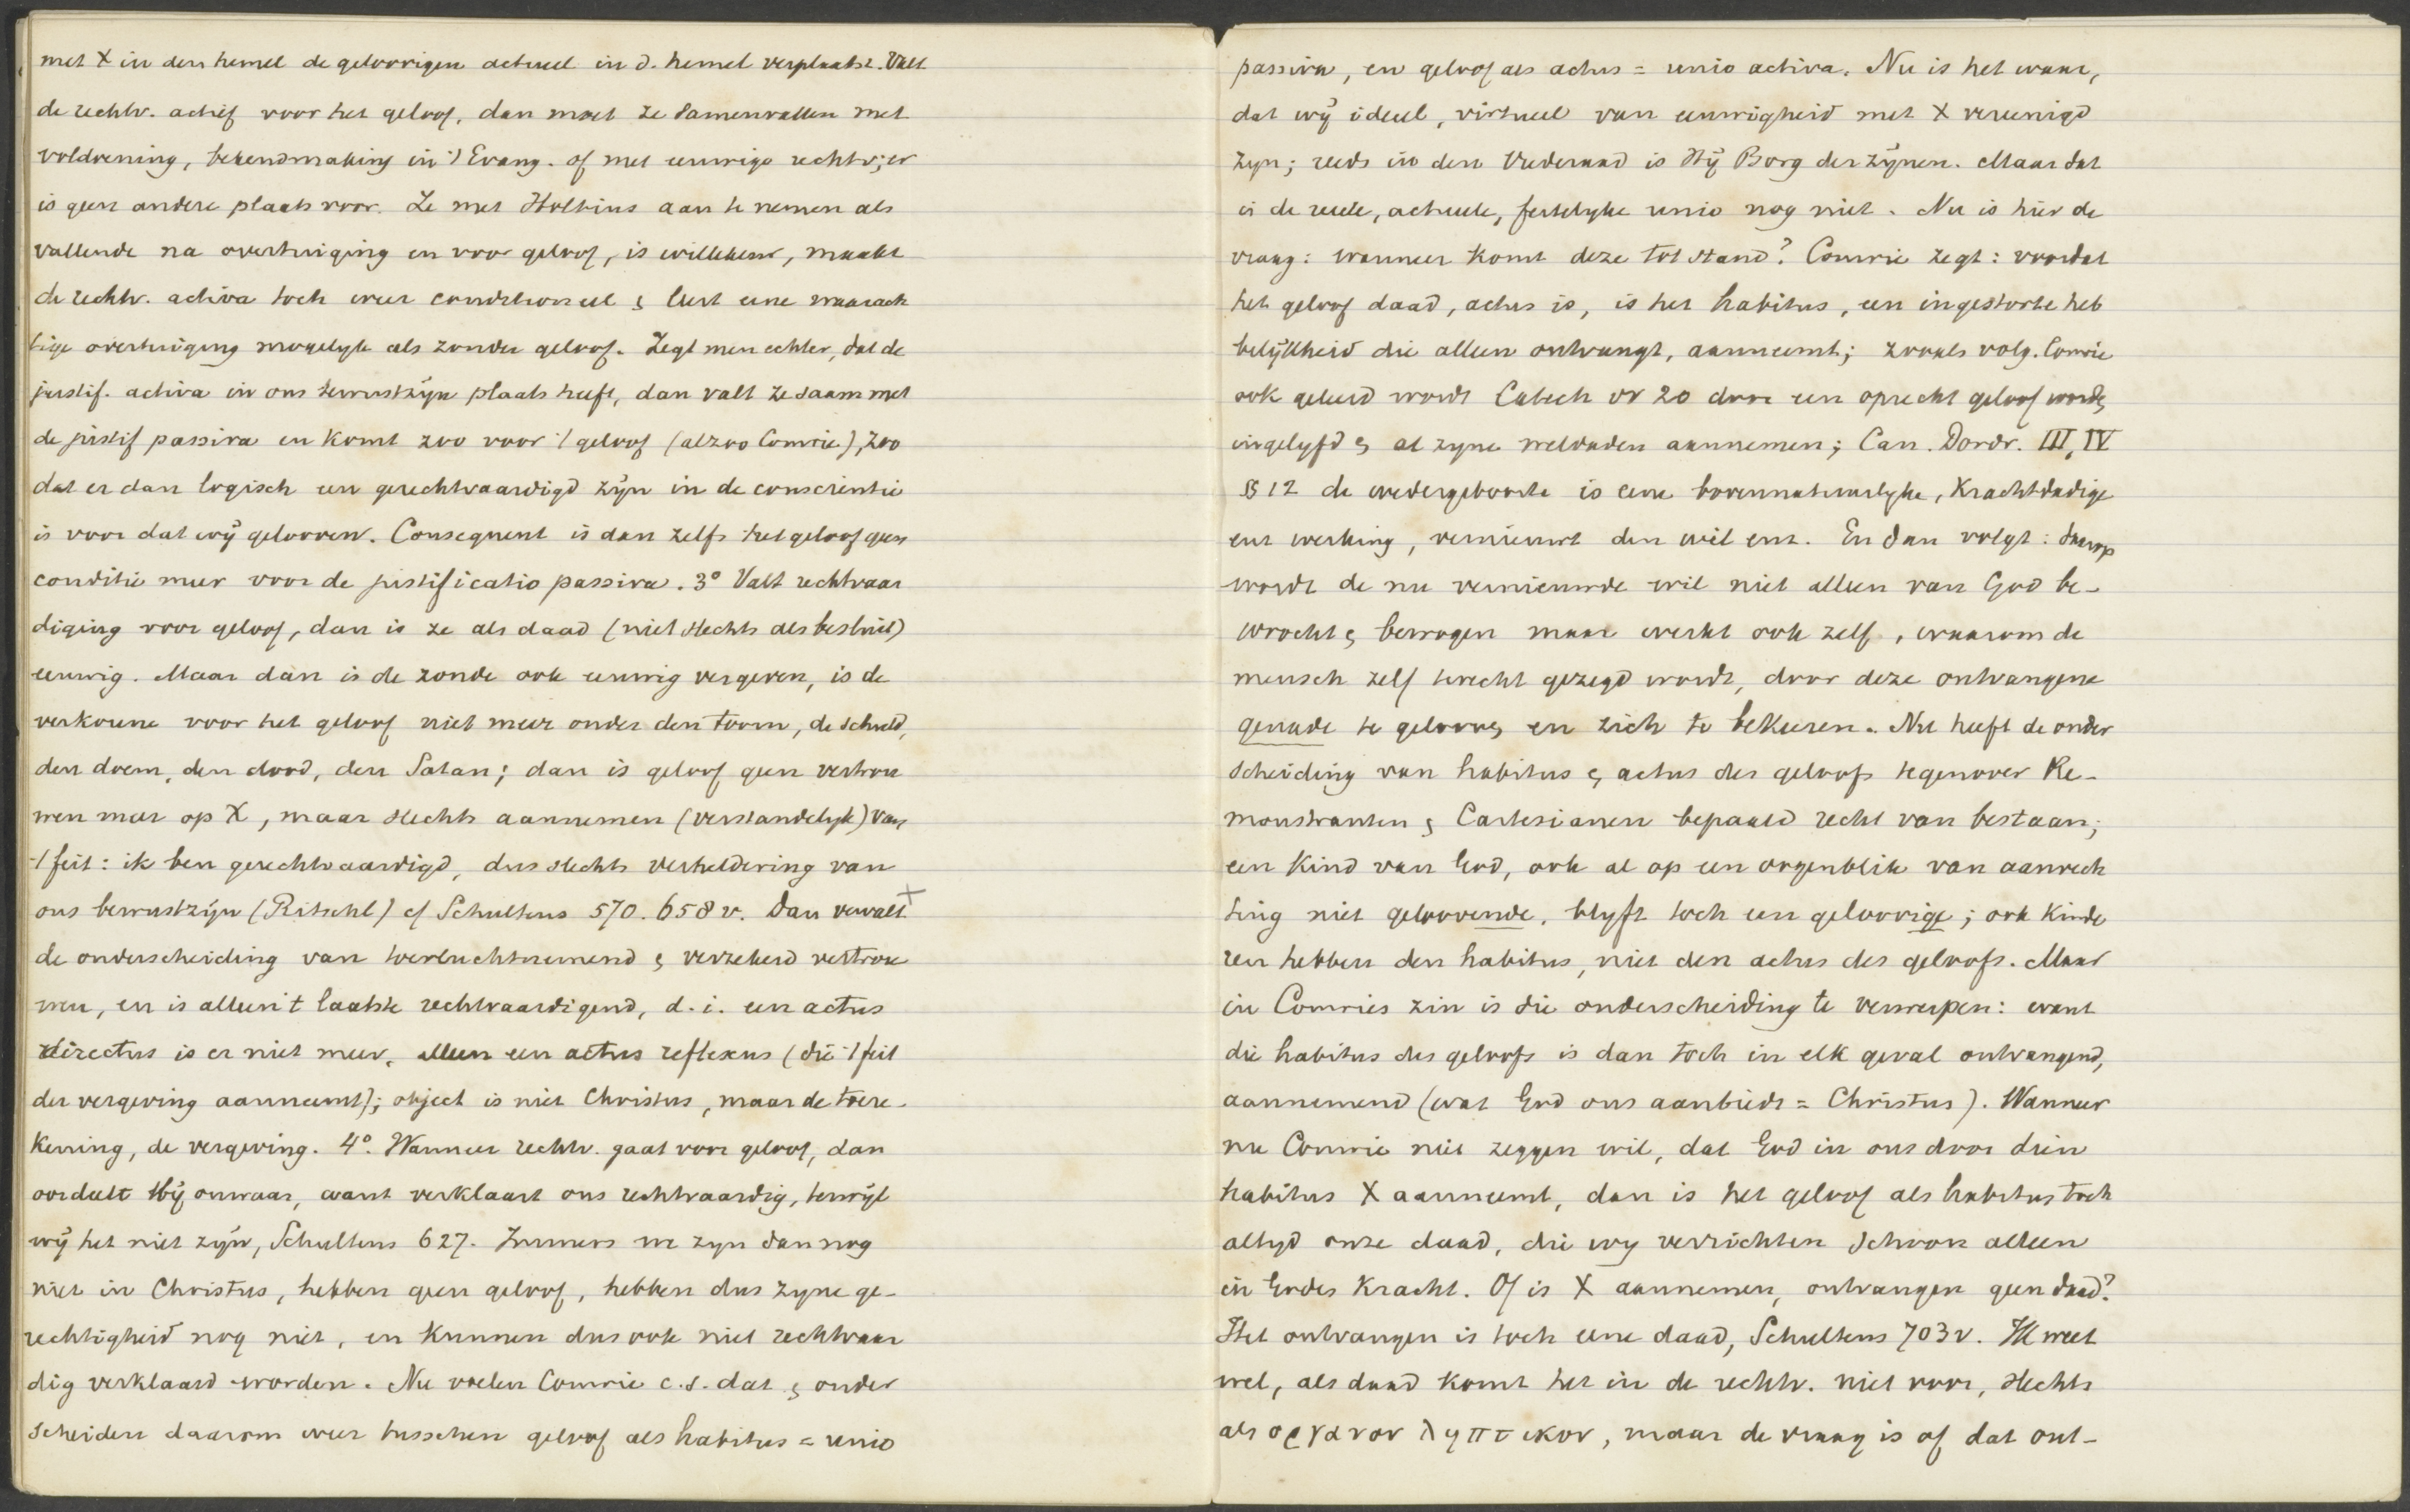 met X in den hemel de geloovigen actueel in d. hemel verplaatst. Valt
de rechtv. actief voor het geloof, dan moet ze samenvallen met
voldoening, bekendmaking in 't Evang. of met eeuwige rechtv; er
is geen andere plaats voor. Ze met Holtius aan te nemen als
vallende na overtuiging en voor geloof, is willekeur, maakt
de rechtv. activa toch weer conditioneel & leert eene waarach
tige overtuiging mogelyk als zonder geloof. Zegt men echter, dat de
justif. activa in ons bewustzijn plaats heeft, dan valt ze saam met
de justif passiva en komt zoo voor 't geloof (alzoo Comrie), zoo
dat er dan logisch een gerechtvaardigd zijn in de conscientie
is voor dat wij gelooven. Consequent is dan zelfs het geloof geen
conditie meer voor de justificatio passiva. 3° Valt rechtvaar
diging voor geloof, dan is ze als daad (niet slechts als besluit)
eeuwig. Maar dan is de zonde ook eeuwig vergeven, is de
verkorene voor het geloof niet meer onder den toorn, de schuld,
den doem, den dood, den Satan; dan is geloof geen vertrou
wen meer op X, maar slechts aannemen (verstandelyk) van
't feit: ik ben gerechtvaardigd, dus slechts verheldering van
ons bewustzijn (Ritschl) cf Schultens 570. 658 v. Dan vervalt +
de onderscheiding van toevluchtnemend & verzekerd vertrou
wen, en is alleen 't laatste rechtvaardigend, d.i. een actus
directus is er niet meer, alleen een actus reflexus (die 't feit
der vergeving aanneemt); object is niet Christus, maar de toere-
kening, de vergeving. 4°. Wanneer rechtv. gaat voor geloof, dan
oordeelt Hij onwaar, want verklaart ons rechtvaardig, terwijl
wij het niet zijn, Schultens 627. Immers we zyn dan nog
niet in Christus, hebben geen geloof, hebben dus zyne ge-
rechtigheid nog niet, en kunnen dus ook niet rechtvaar
dig verklaard worden. Nu voelen Comrie c.s. dat & onder
scheiden daarom weer tusschen geloof als habitus = unio
passiva, en geloof als actus = unio activa. Nu is het waar,
dat wij ideëel, virtueel van eeuwigheid met X vereenigd
zyn; reeds in den Vrederaad is Hij Borg der zijnen. Maar dat
is de reëele, actueele, feitelyke unio nog niet. Nu is hier de
vraag: wanneer komt deze tot stand? Comrie zegt: voordat
het geloof daad, actus is, is het habitus, een ingestorte heb
belijkheid die alleen ontvangt, aanneemt; zooals volg. Comrie
ook geleerd wordt Catech vr 20 door een oprecht geloof worden
ingelyfd & al zyne weldaden aannemen; Can. Dordr. III, IV
§ 12 de wedergeboorte is eene bovennatuurlyke, krachtdadige
enz werking, vernieuwt den wil enz. En dan volgt: daarop
wordt de nu vernieuwde wil niet alleen van God be-
wrocht & bewogen maar werkt ook zelf, waarom de
mensch zelf terecht gezegd wordt, door deze ontvangene
genade te gelooven en zich te bekeeren. Nu heeft de onder
scheiding van habitus & actus des geloofs tegenover Re-
monstranten & Cartesianen bepaald recht van bestaan;
een kind van God, ook al op een oogenblik van aanvech
ting niet geloovende, blyft toch een geloovige; ook kinde
ren hebben den habitus, niet den actus des geloofs. Maar
in Comries zin is die onderscheiding te verwerpen: want
die habitus des geloofs is dan toch in elk geval ontvangend,
aannemend (wat God ons aanbiedt = Christus). Wanneer
nu Comrie niet zeggen wil, dat God in ons door dien
habitus X aanneemt, dan is het geloof als habitus toch
altyd onze daad, die wy verrichten schoon alleen
in Godes kracht. Of is X aannemen, ontvangen geen daad?
Het ontvangen is toch eene daad, Schultens 703v. Ik weet
wel, als daad komt het in de rechtv. niet voor, slechts
als οργανον ληπτικον, maar de vraag is of dat ont-